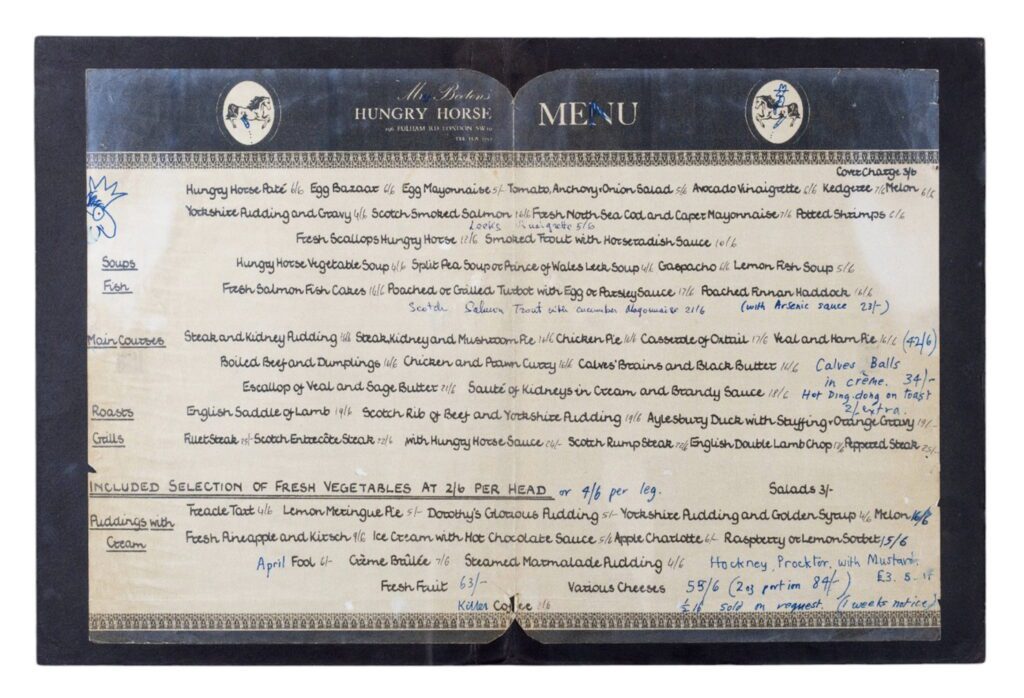 Mrs Beetons
HUNGRY HORSE
196 FULHAM RD. LONDON SW10
MENU
Cover Charge 3/6
Hungry Horse Paté 6/6 Egg Bazaar 6/6 Egg Mayonnaise 5/- Tomato, Anchovy & Onion Salad 5/6 Avocado Vinaigrette 6/6 Kedgeree 7/6 Melon 6/6
Yorkshire Pudding and Gravy 4/6 Scotch Smoked Salmon 16/6 Fresh North Sea Cod and Caper Mayonnaise 7/6 Potted Shrimps 6/6
Leeks Vinaigrette 5/6
Fresh Scallops Hungry Horse 12/6 Smoked Trout with Horseradish Sauce 10/6
Soups Hungry Horse Vegetable Soup 4/6 Split Pea Soup or Prince of Wales Leek Soup 4/6 Gaspacho 6/6 Lemon Fish Soup 5/6
Fish Fresh Salmon Fish Cakes 16/6 Poached or Grilled Turbot with Egg or Parsley Sauce 17/6 Poached Finnan Haddock 16/6
Scotch Salmon Trout with cucumber Mayonnaise 21/6 (with Arsenic sauce 23/-)
Main Courses Steak and Kidney Pudding Steak, Kidney and Mushroom Pie Chicken Pie Casserole of Oxtail 17/6 Veal and Ham Pie 16/6 (42/6)
Boiled Beef and Dumplings 16/6 Chicken and Prawn Curry 16/6 Calves' Brains and Black Butter 16/6 Calves Balls
in crème. 34/-
Escallop of Veal and Sage Butter 21/6 Sauté of Kidneys in Cream and Brandy Sauce 18/6 Hot Ding dong on toast
2/- extra.
Roasts English Saddle of Lamb 19/6 Scotch Rib of Beef and Yorkshire Pudding 19/6 Aylesbury Duck with Stuffing & Orange Gravy 19/-
Grills Fillet Steak Scotch Entrecôte Steak 22/6 with Hungry Horse Sauce Scotch Rump Steak English Double Lamb Chop Peppered Steak 25/-
INCLUDED SELECTION OF FRESH VEGETABLES AT 2/6 PER HEAD or 4/6 per leg. Salads 3/-
Puddings with Cream
Treacle Tart 4/6 Lemon Meringue Pie 5/- Dorothy's Glorious Pudding 5/- Yorkshire Pudding and Golden Syrup 4/6 Melon
Fresh Pineapple and Kirsch 9/6 Ice Cream with Hot Chocolate Sauce 5/6 Apple Charlotte 6/- Raspberry or Lemon Sorbet 15/6
April Fool 6/- Crème Brûlée 7/6 Steamed Marmalade Pudding 4/6 Hockney, Procktor, with Mustard.
Fresh Fruit 63/- Various Cheeses 55/6 (2oz portion 84/-) £3. 5.
Killer Coffee ½ lb sold on request. (1 weeks notice)